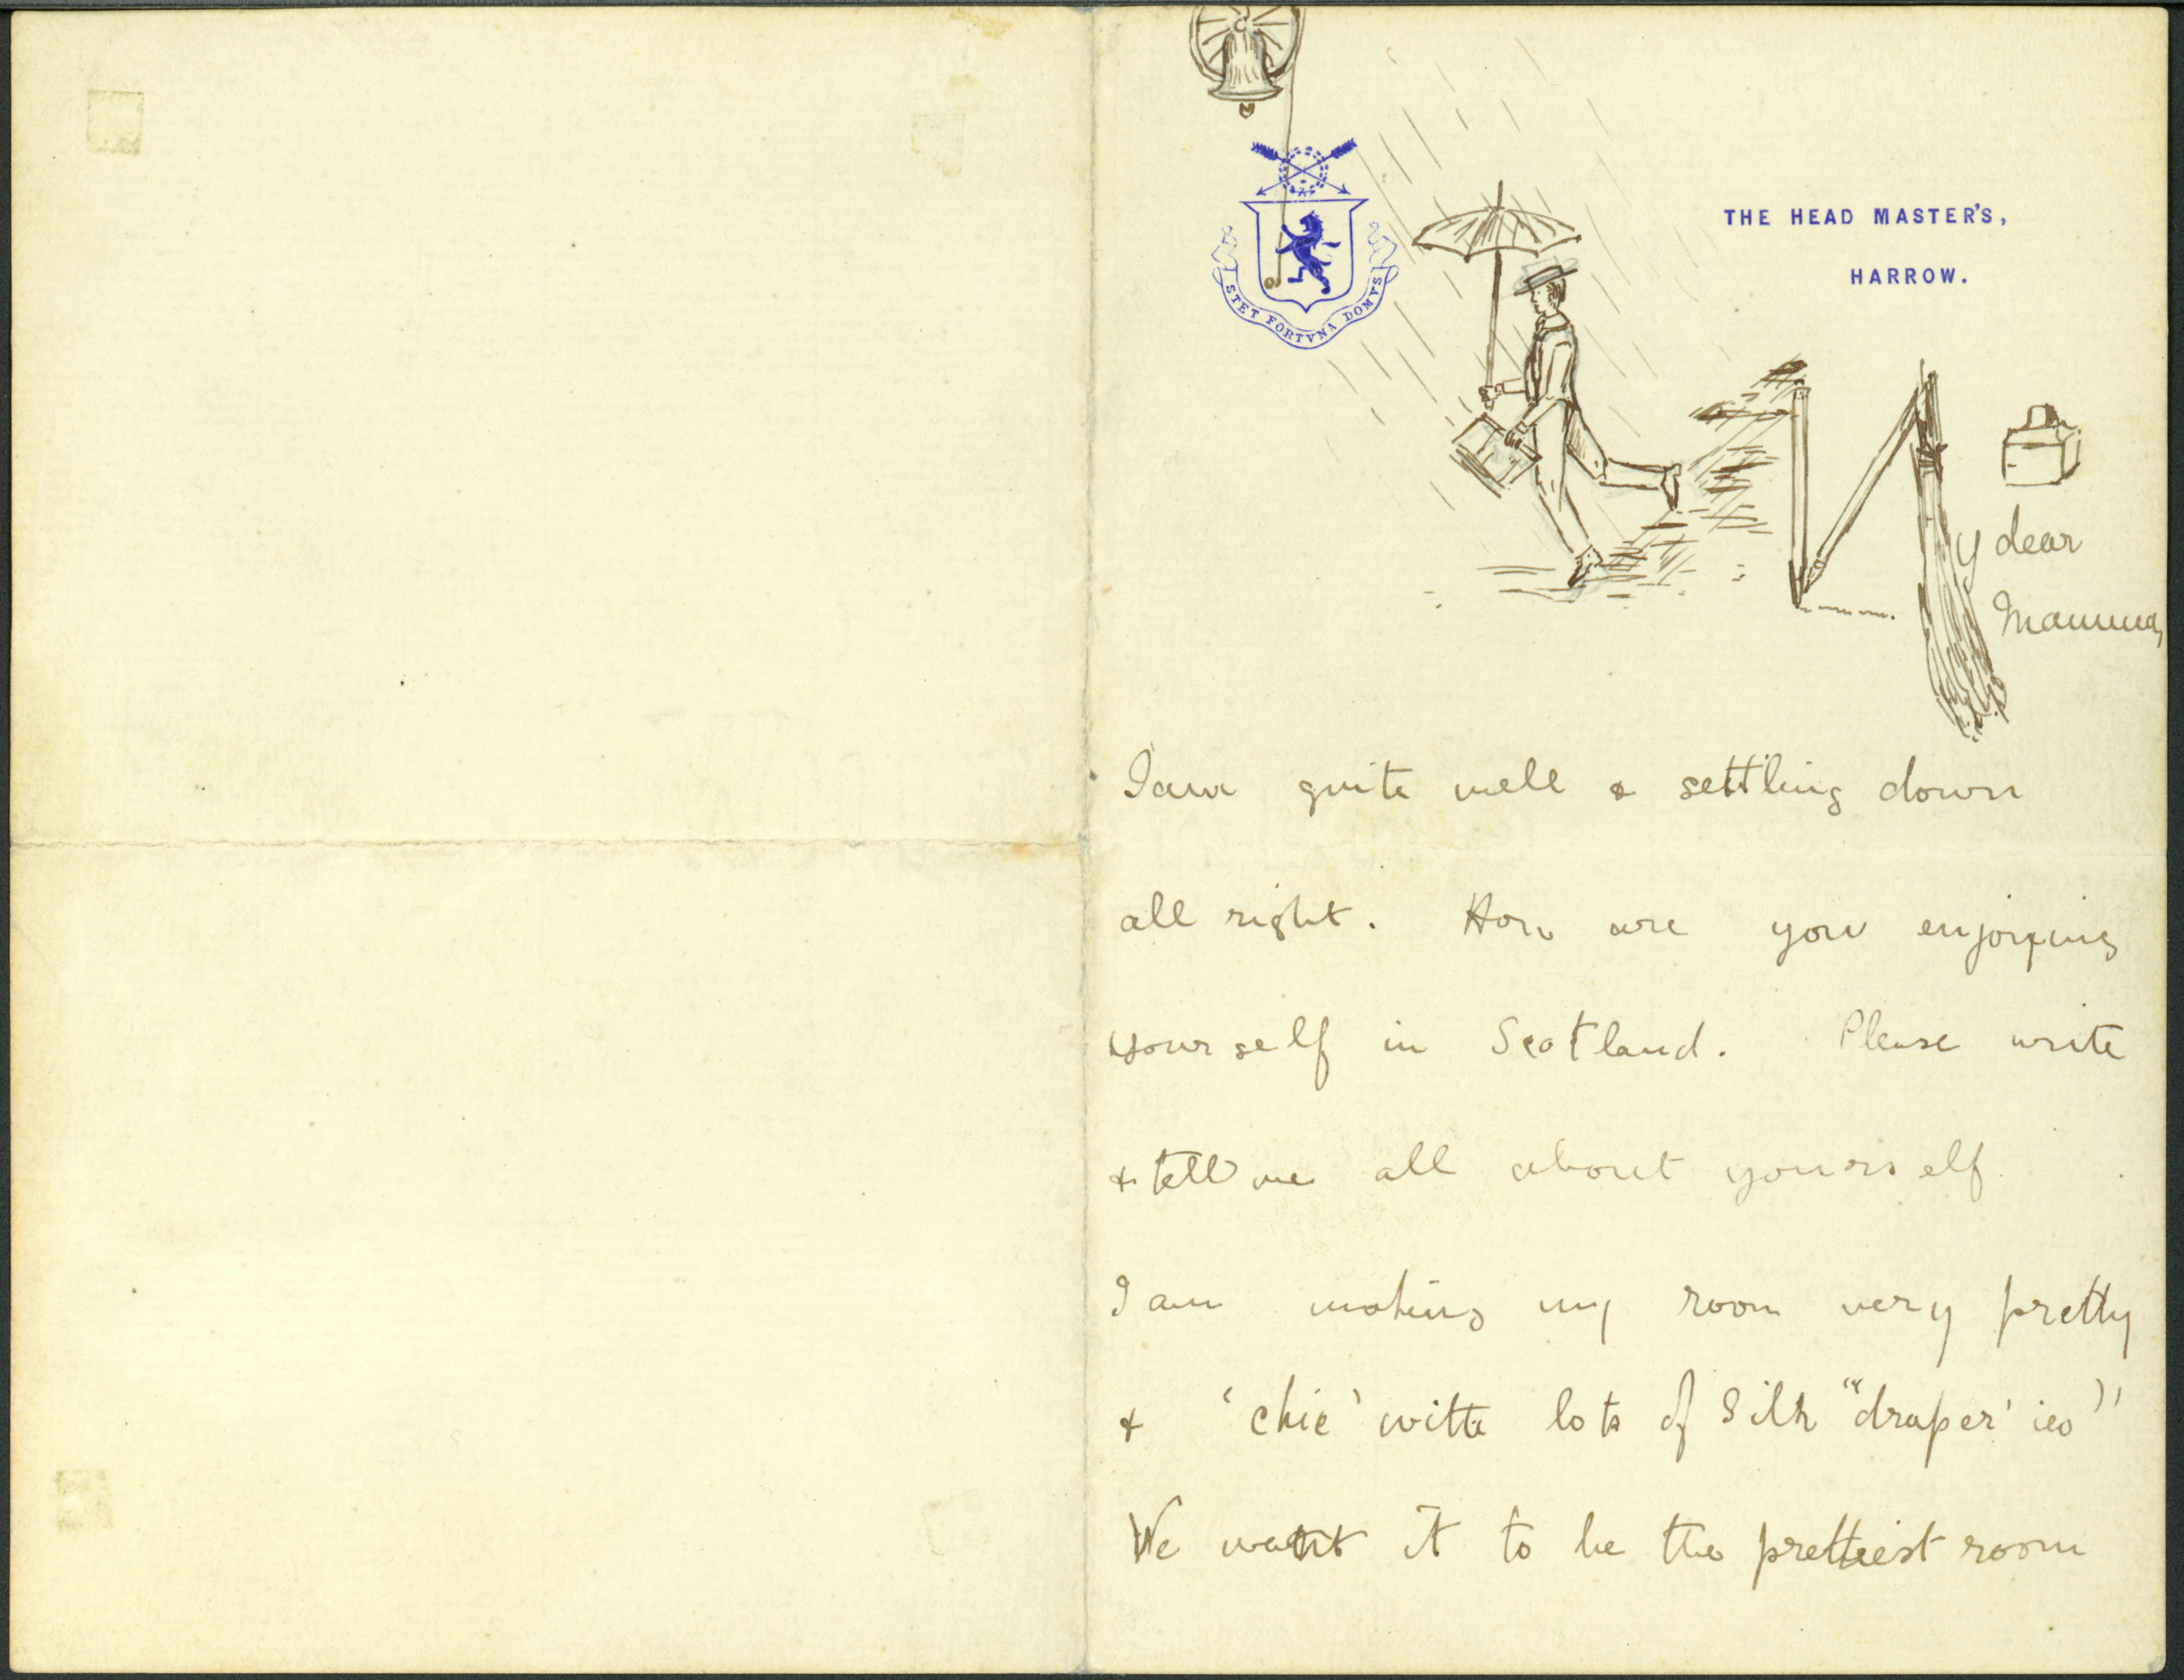 THE HEAD MASTER'S,
HARROW.
STET FORTVNA DOMVS
My dear
Mamma,
I am quite well & settling down
all right. How are you enjoying
yourself in Scotland. Please write
& tell me all about yourself
I am making my room very pretty
& 'chic' with lots of Silk "draper'ies"
We want it to be the prettiest room